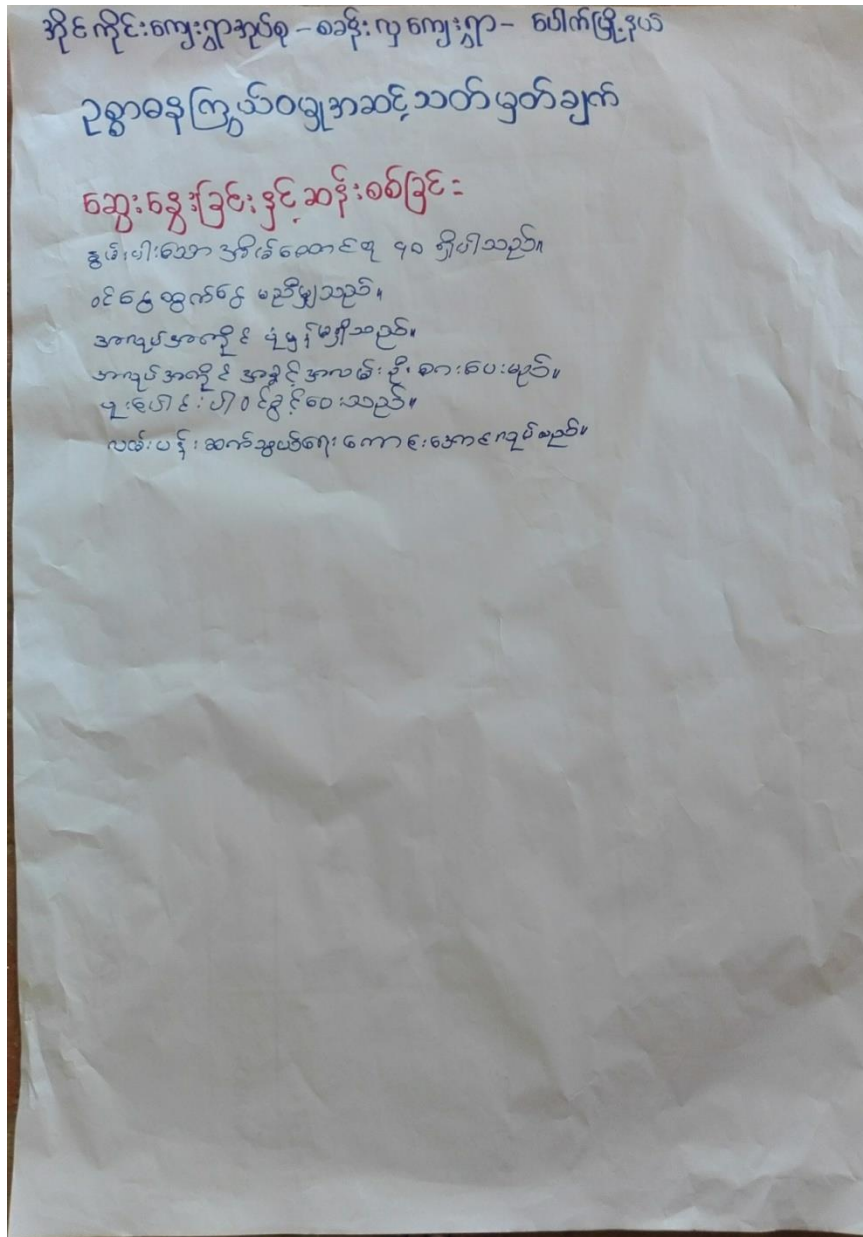 အိုင်ကိုင်းကျေးရွာအုပ်စု - စခန်းလှကျေးရွာ - ပေါက်မြို့နယ်
ဥစ္စာဓနကြွယ်ဝမှုအဆင့်သတ်မှတ်ချက်
ဆွေးနွေးခြင်းနှင့်ဆန်းစစ်ခြင်း
နွမ်းပါးသော အိမ်ထောင်စု ၄၀ ရှိပါသည်။
ဝင်ငွေထွက်ငွေ မညီမျှသည်။
အလုပ်အကိုင် ပုံမှန်မရှိသည်။
အလုပ်အကိုင် အခွင့်အလမ်း ဦးစားပေးမည်။
ပူးပေါင်းပါဝင်ခွင့်ပေးသည်။
လမ်းပန်းဆက်သွယ်ရေး ကောင်းအောင်လုပ်မည်။